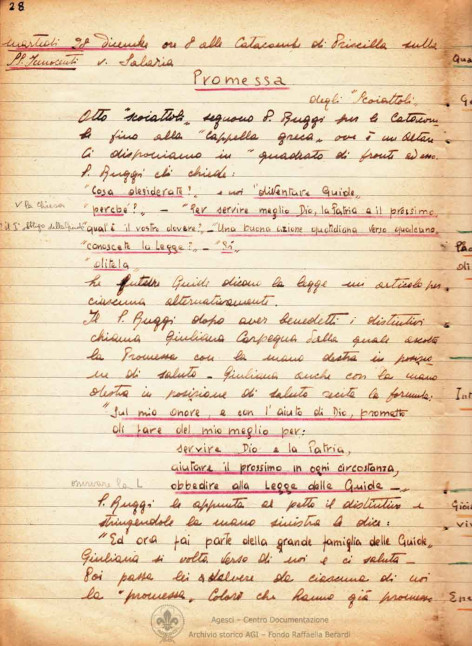 28
martedì 28 Dicembre ore 8 alle Catacombe di Priscilla sulla
SS. Innocenti v. Salaria
Promessa
degli "Scoiattoli"
Otto "scoiattoli" seguono P. Ruggi per le Catacom
be fino alla "Cappella greca" ove è un Altare
Ci disponiamo in "quadrato di fronte ad esso.
P. Ruggi ci chiede:
"Cosa desiderate?" e noi "diventare Guide"
"perché?" - "Per servire meglio Dio, la Patria e il prossimo
"qual è il vostro dovere?" - Una buona azione quotidiana verso qualcuno,
"conoscete la Legge?" - "Sì"
"ditela"
Le Guide dicono la legge un articolo per
ciascuna alternativamente.
Il P. Ruggi dopo aver benedetti i distintivi
chiama Giuliana Carpegna dalla quale ascolta
la Promessa con la mano destra in posizio
ne di saluto - Giuliana anche con la mano
destra in posizione di saluto recita la formula:
"Sul mio onore, e con l'aiuto di Dio, prometto
di fare del mio meglio per:
servire Dio e la Patria,
aiutare il prossimo in ogni circostanza,
obbedire alla Legge delle Guide -
P. Ruggi le appunta al petto il distintivo e
stringendole la mano sinistra le dice:
"Ed ora fai parte della grande famiglia delle Guide"
Giuliana si volta verso di noi e ci saluta -
Poi passa lei a da ciascuna di noi
la "promessa". Coloro che hanno già promesso
Agesci – Centro Documentazione
Archivio storico AGI – Fondo Raffaella Berardi